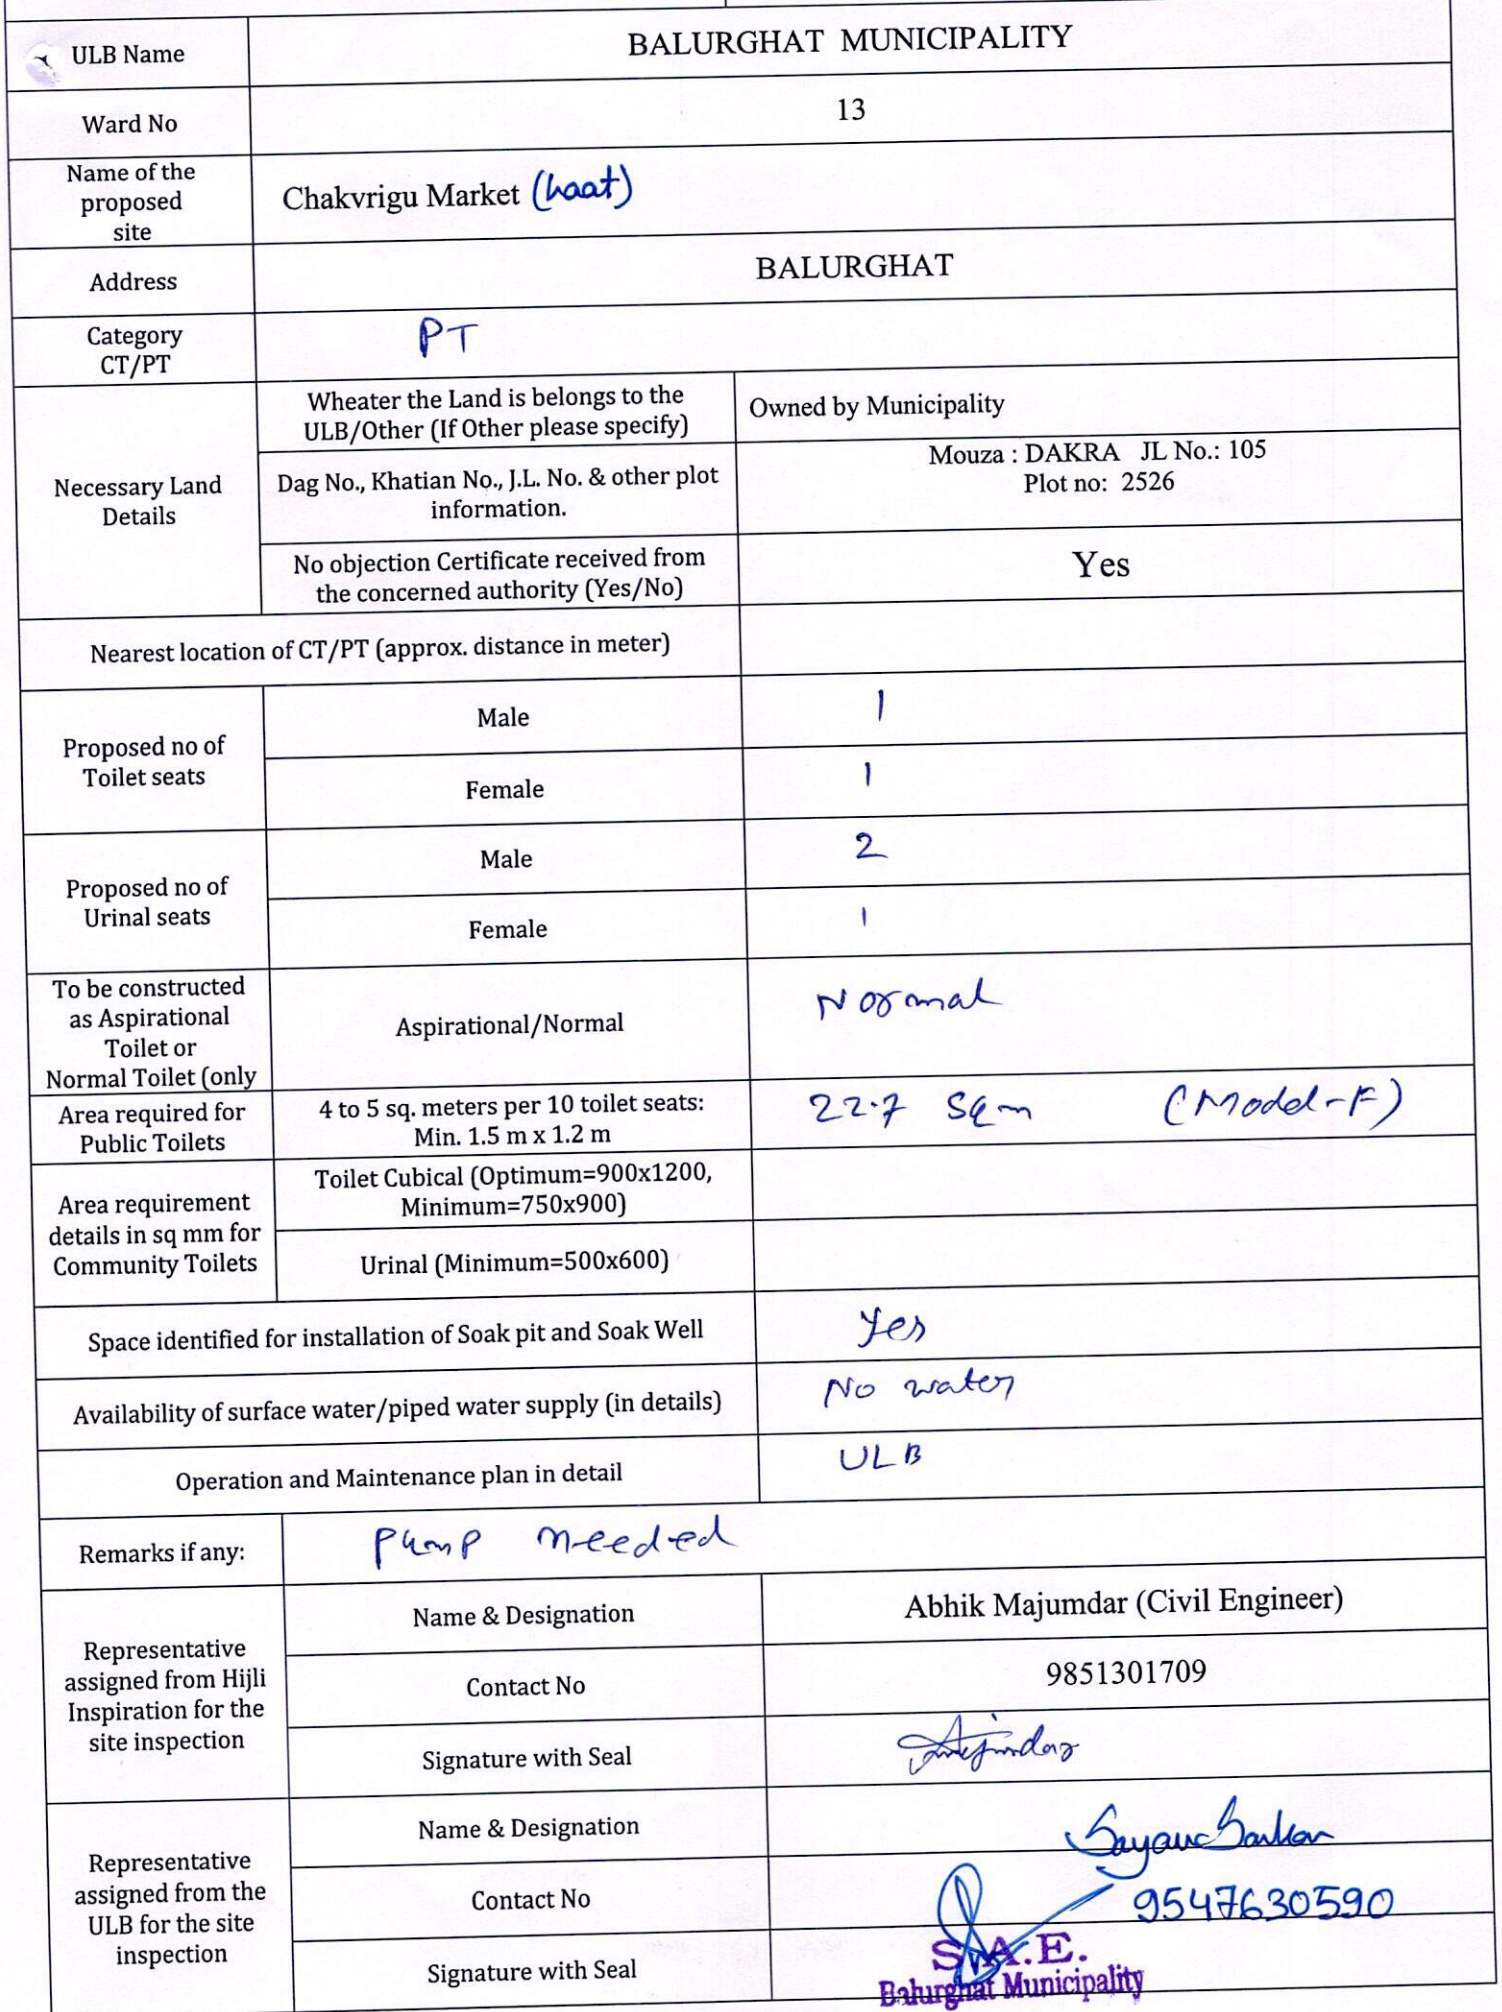 ULB Name
BALURGHAT MUNICIPALITY
Ward No
13
Name of the
proposed
site
Chakvrigu Market (haat)
Address
BALURGHAT
Category
CT/PT
PT
Necessary Land
Details
Wheater the Land is belongs to the
ULB/Other (If Other please specify)
Owned by Municipality
Dag No., Khatian No., J.L. No. & other plot
information.
Mouza : DAKRA JL No.: 105
Plot no: 2526
No objection Certificate received from
the concerned authority (Yes/No)
Yes
Nearest location of CT/PT (approx. distance in meter)
Proposed no of
Toilet seats
Male
1
Female
1
Proposed no of
Urinal seats
Male
2
Female
1
To be constructed
as Aspirational
Toilet or
Normal Toilet (only
Aspirational/Normal
Normal
Area required for
Public Toilets
4 to 5 sq. meters per 10 toilet seats:
Min. 1.5 m x 1.2 m
22.7 Sqm (Model-F)
Area requirement
details in sq mm for
Community Toilets
Toilet Cubical (Optimum=900x1200,
Minimum=750x900)
Urinal (Minimum=500x600)
Space identified for installation of Soak pit and Soak Well
Yes
Availability of surface water/piped water supply (in details)
No water
Operation and Maintenance plan in detail
ULB
Remarks if any:
Pump needed
Representative
assigned from Hijli
Inspiration for the
site inspection
Name & Designation
Abhik Majumdar (Civil Engineer)
Contact No
9851301709
Signature with Seal
Representative
assigned from the
ULB for the site
inspection
Name & Designation
Sayan Sarkar
Contact No
9547630590
Signature with Seal
S.A.E.
Balurghat Municipality